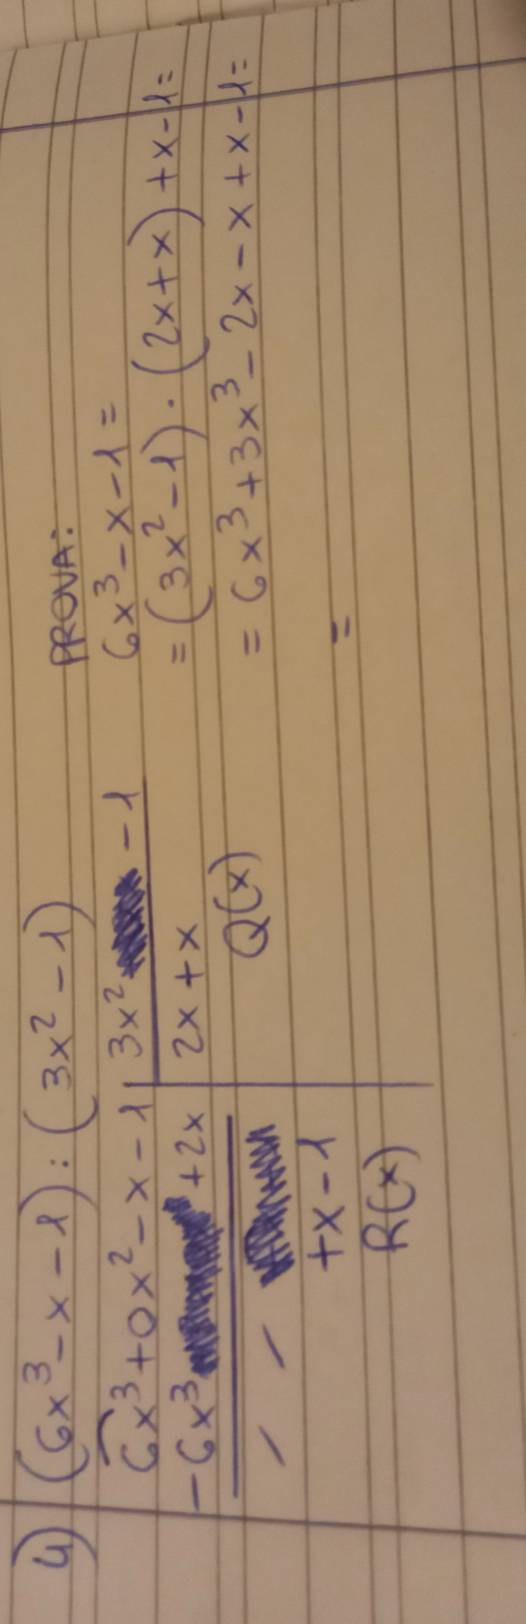 4) (6x³ - x - 1) : (3x² - 1)
6x³ + 0x² - x - 1 | 3x² - 1
- 6x³ + 2x | 2x + x
/ / + x - 1 Q(x)
R(x)
PROVA:
6x³ - x - 1 =
= (3x² - 1) · (2x + x) + x - 1 =
= 6x³ + 3x³ - 2x - x + x - 1 =
=